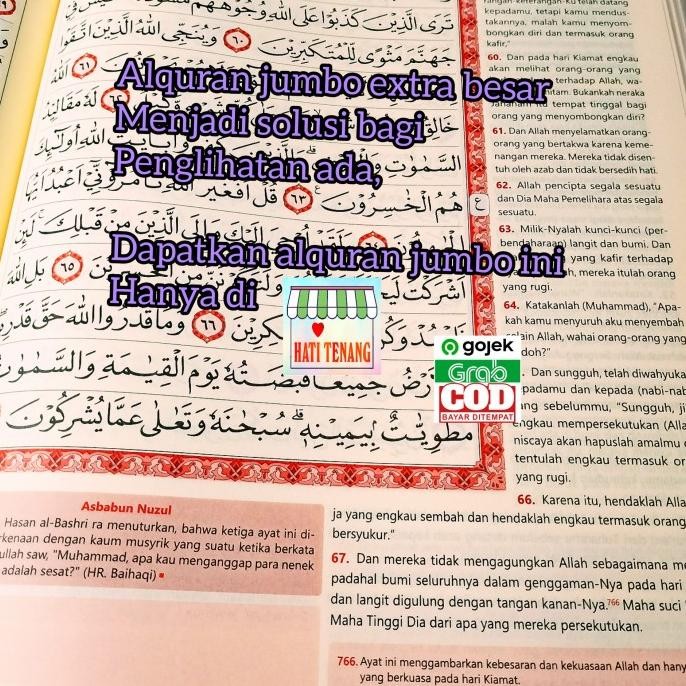 تَرَى الَّذِيْنَ كَذَبُوْا عَلَى اللّٰهِ وُجُوْهُهُمْ
جَهَنَّمَ مَثْوًى لِّلْمُتَكَبِّرِيْنَ ٦٠ وَيُنَجِّى اللّٰهُ الَّذِيْنَ اتَّقَوْا
٦١ اَللّٰهُ
لَهٗ مَقَالِيْدُ
خَالِقُ
السَّمٰوٰتِ بِاٰيٰتِ اللّٰهِ اُولٰۤىِٕكَ
هُمُ الْخٰسِرُوْنَ ٦٣ قُلْ اَفَغَيْرَ اللّٰهِ تَأْمُرُوْۤنِّيْٓ اَعْبُدُ اَيُّهَا
وَاِلَى الَّذِيْنَ مِنْ قَبْلِكَ لَىِٕنْ
اَشْرَكْتَ ٦٥ بَلِ اللّٰهَ
٦٦ وَمَا قَدَرُوا اللّٰهَ حَقَّ قَدْرِهٖ
جَمِيْعًا قَبْضَتُهٗ يَوْمَ الْقِيٰمَةِ وَالسَّمٰوٰتُ
مَطْوِيّٰتٌ بِيَمِيْنِهٖ سُبْحٰنَهٗ وَتَعٰلٰى عَمَّا يُشْرِكُوْنَ
Alquran jumbo extra besar
Menjadi solusi bagi
Penglihatan ada,
Dapatkan alquran jumbo ini
Hanya di
HATI TENANG
gojek
Grab
COD
BAYAR DITEMPAT
kepadamu, tetapi kamu mendus-
takannya, malah kamu menyom-
bongkan diri dan termasuk orang
kafir."
60. Dan pada hari Kiamat engkau
akan melihat orang-orang yang
terhadap Allah, wa-
hitam. Bukankah neraka
Jahanam itu tempat tinggal bagi
orang yang menyombongkan diri?
61. Dan Allah menyelamatkan orang-
orang yang bertakwa karena keme-
nangan mereka. Mereka tidak disen-
tuh oleh azab dan tidak bersedih hati.
62. Allah pencipta segala sesuatu
dan Dia Maha Pemelihara atas segala
sesuatu.
63. Milik-Nyalah kunci-kunci (per-
bendaharaan) langit dan bumi. Dan
yang kafir terhadap
mereka itulah orang
yang rugi.
64. Katakanlah (Muhammad), "Apa-
kah kamu menyuruh aku menyembah
selain Allah, wahai orang-orang yang
Dan sungguh, telah diwahyukan
kepadamu dan kepada (nabi-nabi)
yang sebelummu, "Sungguh, ji
engkau mempersekutukan (Alla
niscaya akan hapuslah amalmu d
tentulah engkau termasuk or
yang rugi.
66. Karena itu, hendaklah Alla
ja yang engkau sembah dan hendaklah engkau termasuk orang
bersyukur."
67. Dan mereka tidak mengagungkan Allah sebagaimana me
padahal bumi seluruhnya dalam genggaman-Nya pada hari
dan langit digulung dengan tangan kanan-Nya.766 Maha suci
Maha Tinggi Dia dari apa yang mereka persekutukan.
766. Ayat ini menggambarkan kebesaran dan kekuasaan Allah dan hany
yang berkuasa pada hari Kiamat.
Asbabun Nuzul
Hasan al-Bashri ra menuturkan, bahwa ketiga ayat ini di-
rkenaan dengan kaum musyrik yang suatu ketika berkata
ullah saw, "Muhammad, apa kau menganggap para nenek
adalah sesat?" (HR. Baihaqi)